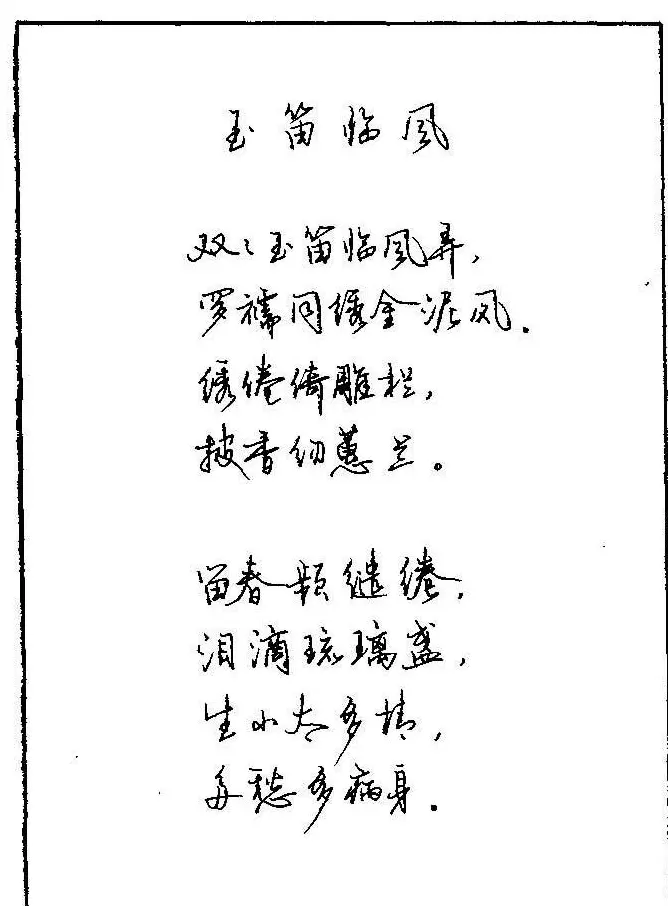 玉笛临风
双〻玉笛临风弄,
罗襦同绣金泥凤.
绣倦绮雕栏,
披香纫蕙兰。
留春频缱绻,
泪滴琉璃盏,
生小太多情,
多愁多病身.